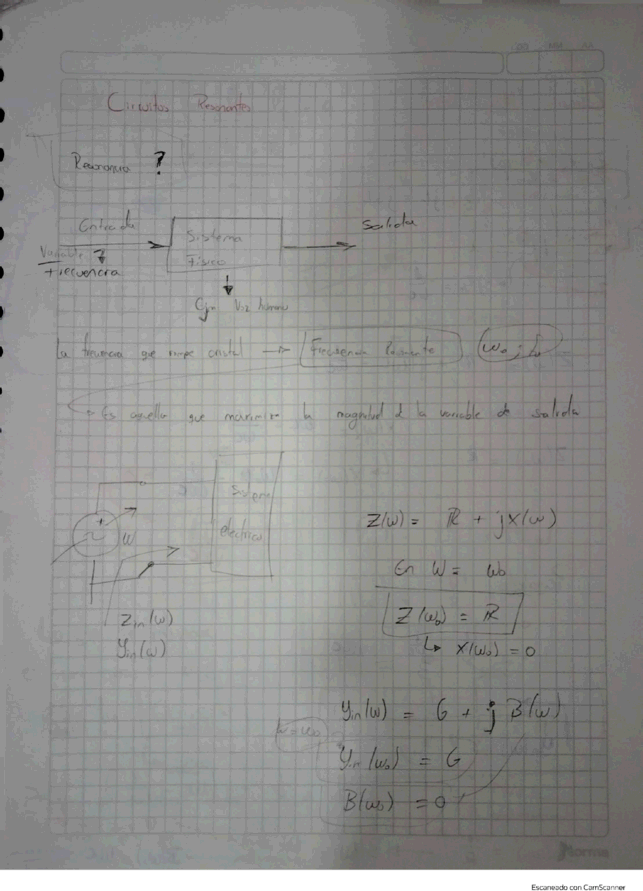 Circuitos Resonantes
Resonancia ?
Entrada
Salida
Sistema
Físico
Variable
frecuencia
Ejm Voz humana
La frecuencia que rompe cristal → Frecuencia Resonante (ω₀ ; f₀)
→ Es aquella que maximiza la magnitud d la variable de salida
Sistema
eléctrico
+
~
ω
Zin(ω)
Yin(ω)
Z(ω) = R + jX(ω)
En ω = ω₀
Z(ω₀) = R
↳ X(ω₀) = 0
Yin(ω) = G + j B(ω)
ω=ω₀
Yin(ω₀) = G
B(ω₀) = 0
Norma
Escaneado con CamScanner